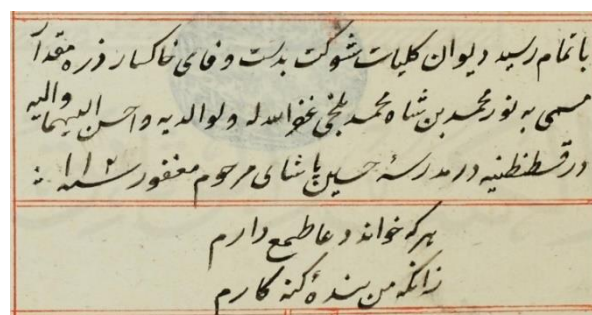 باتمام رسید دیوان کلیات شوکت بدست وفای خاکسار ذره مقدار
مسمی به نور محمد بن شاه محمد بلخی غفر الله له ولوالدیه واحسن الیهما والیه
در قسطنطنیه در مدرسهٔ حسین پاشای مرحوم مغفور سنه
هر که خواند دعا طمع دارم
زانکه من بندهٔ گنه کارم